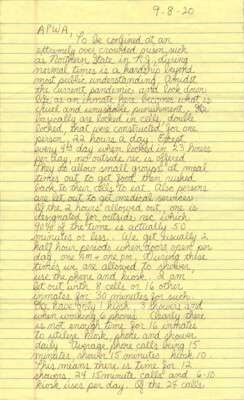 9-8-20
APWA,
To be confined at an
extremely over crowded prison, such
as Northern State in N.J., during
normal times is a hardship beyond
most public understanding. Amidst
the current pandemic and lock down
life as an inmate here becomes what is
cruel and unusual punishment. We
basically are locked in cells, double
locked, that were constructed for one
person, 22 hours a day. Except
every 4th day when locked in 23 hours
per day, no outside rec is offered.
They do allow small groups at meal
times out to get food then rushed
back to their cells to eat. Also persons
are let out to get medical services.
Of the 2 hours allowed out, one is
designated for outside rec which
90% of the time is actually 50
minutes or less. We get usually 2
half hour periods when doors open per
day, one AM + one PM. During these
times we are allowed to shower,
use the phone and kiosk. I am
let out with 8 cells or 16 other
inmates for 30 minutes for such.
We have only 1 kiosk, 3 showers and
when working 6 phones. Clearly there
is not enough time for 16 inmates
to utilize kiosk, phone and shower
daily. Average phone calls being 15
minutes, shower 15 minutes, kiosk 10.
This means there is time for 12
showers, 24 15 minute calls and 6-10
kiosk uses per day. Of the 24 calls